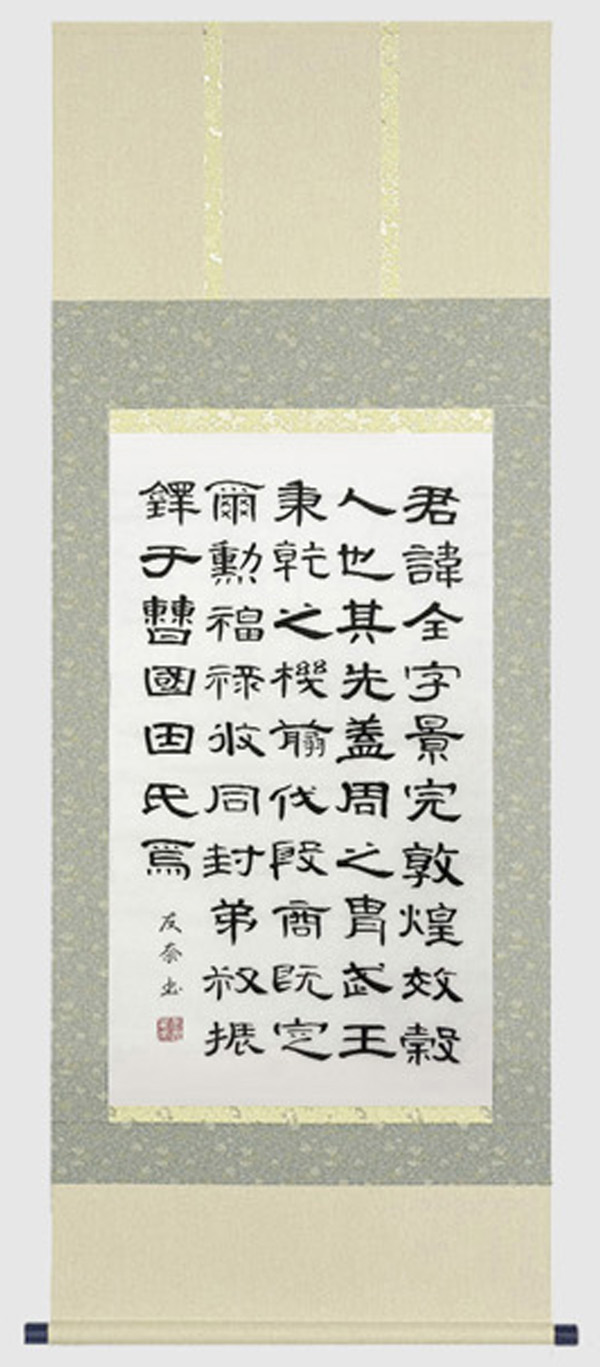 君諱全字景完敦煌效穀
人也其先蓋周之胄武王
秉乾之機翦伐殷商既定
爾勳福祿攸同封弟叔振
鐸于曹國因氏焉
友奈书